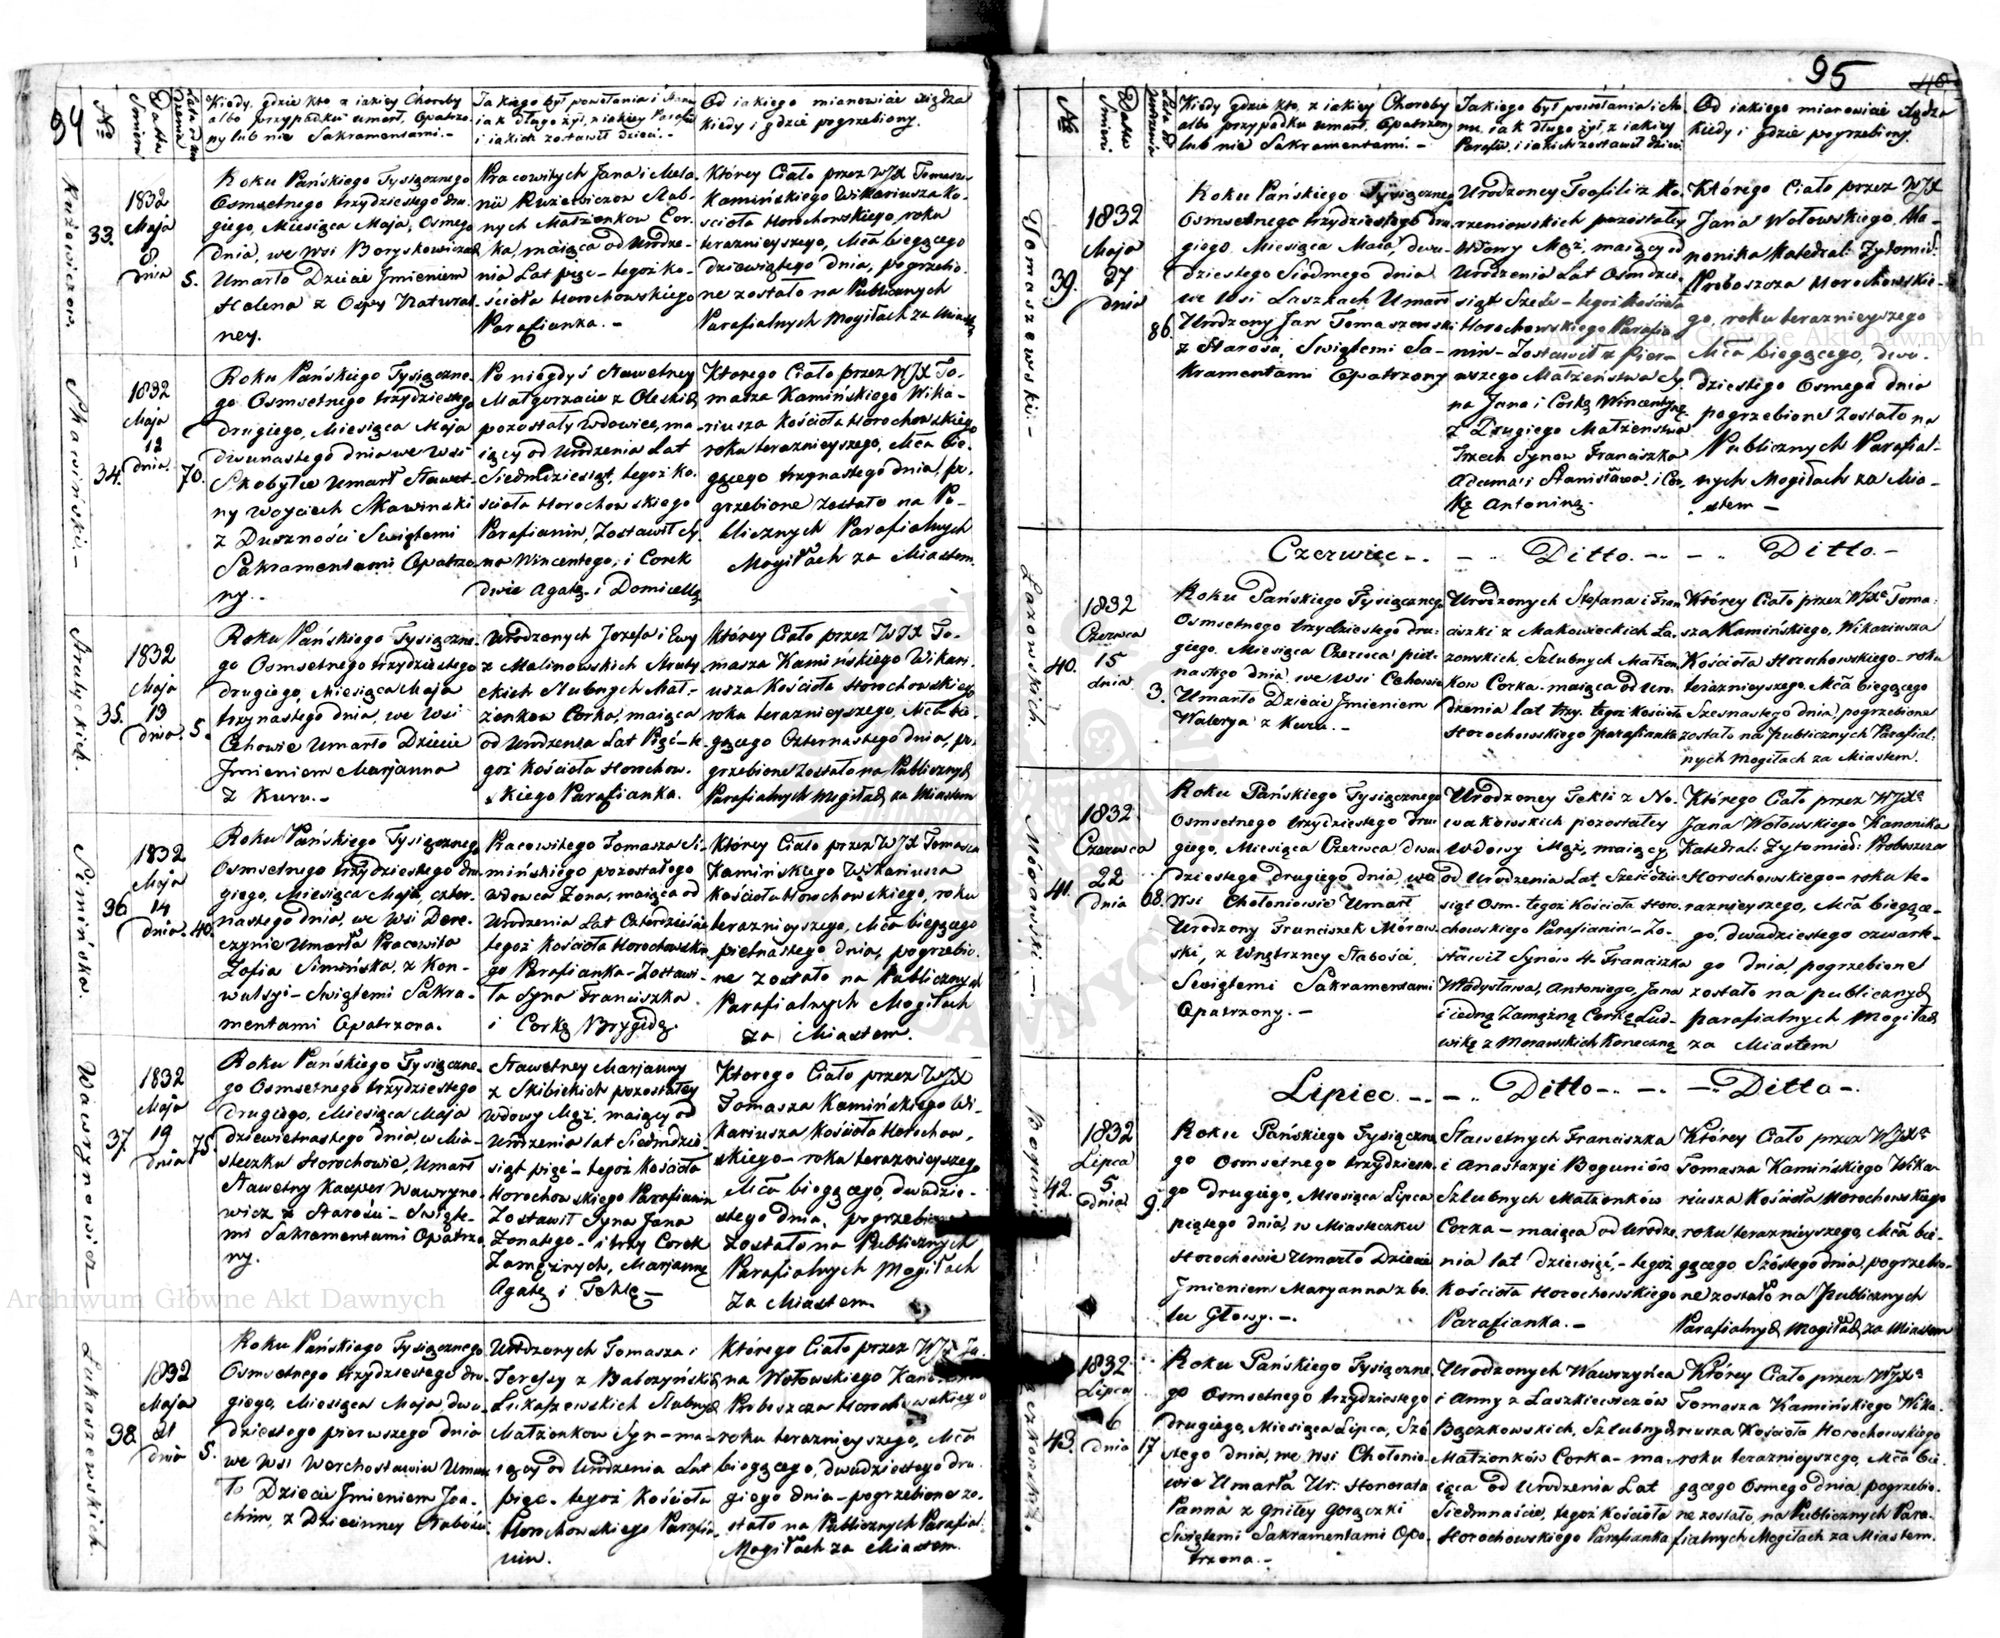 94
No
Datta Smierci
Lata od urodzenia
Kiedy, gdzie kto, z iakiey Choroby
albo przypadku umarł, Opatrzo-
ny lub nie Sakramentami. -
Jakiego był powołania i Stanu
iak długo żył, z iakiey Parafii
i iakich zostawił dzieci. -
Od iakiego mianowicie Xiędza
kiedy i gdzie pogrzebiony.
33.
1832
Maja
8
dnia
5.
Roku Pańskiego Tysiącznego
Osmsetnego trzydziestego dru-
giego, Miesiąca Maja, Osmego
dnia, we wsi Boryskowiczach
Umarło Dziecie Jmieniem
Helena z Ospy Natural-
ney.
Pracowitych Jana i Mela-
nii Ruziewiczow Slub-
nych Małżonkow Cor-
ka, maiąca od Urodze-
nia Lat pięc - tegoż Ko-
ścioła Horochowskiego
Parafianka. -
Ktorey Ciało przez WJX Tomasza
Kamińskiego Wikariusza Ko-
scioła Horochowskiego, roku
teraznieyszego, Mca biegącego
dziewiątego dnia, pogrzebio-
ne zostało na Publicznych
Parafialnych Mogiłach za Miastem
Skawiński. -
34.
1832
Maja
12
dnia
70.
Roku Pańskiego Tysiączne-
go Osmsetnego trzydziestego
drugiego, Miesiąca Maja
dwunastego dnia we wsi
Skobyłce Umarł Sławet-
ny Woyciech Skawinski
z Duszności Swiętemi
Sakramentami Opatrzo-
ny. -
Po niegdyś Sławetney
Małgorzacie z Oleskich
pozostały Wdowiec, ma-
iący od Urodzenia Lat
Siedmdziesiąt, tegoż Ko-
scioła Horochowskiego
Parafianin, Zostawił Sy-
na Wincentego, i Corek
dwie Agatę i Domicellę
Ktorego Ciało przez WJX To-
masza Kamińskiego Wika-
riusza Kościoła Horochowskiego
roku teraznieyszego, Mca bie-
gącego trzynastego dnia, po-
grzebione Zostało na Pu-
blicznych Parafialnych
Mogiłach za Miastem.
35.
1832
Maja
13
dnia
5.
Roku Pańskiego Tysiączne-
go Osmsetnego trzydziestego
drugiego, Miesiąca Maja
trzynastego dnia, we Wsi
Cehowie Umarło Dziecie
Jmieniem Marjanna
Z Kuru. -
Urodzonych Jozefa i Ewy
z Malinowskich Struty-
ckich Slubnych Mał-
żonkow Corka, maiąca
od Urodzenia Lat Pięć - te-
goż Kościoła Horochow-
skiego Parafianka.
Którey Ciało przez WJX To-
masza Kamińskiego Wikari-
usza Kościoła Horochowskiego
roku teraznieyszego, Mca bie-
gącego Czternastego dnia, po-
grzebione Zostało na Publicznych
Parafialnych Mogiłach za Miastem
Simińska.
36.
1832
Maja
14
dnia.
40.
Roku Pańskiego Tysiącznego
Osmsetnego trzydziestego dru-
giego, Miesiąca Maja, czter-
nastego dnia, we Wsi Dere-
czynie Umarła Pracowita
Zofia Simińska, z Kon-
wulsyi - Swiętemi Sakra-
mentami Opatrzona.
Pracowitego Tomasza Si-
mińskiego pozostałego
Wdowca Żona, maiąca od
Urodzenia Lat Czterdzieście
tegoż Kościoła Horochowskie-
go Parafianka - Zostawi-
ła Syna Franciszka
i Corkę Brygidę.
Którey Ciało przez WJX Tomasza
Kamińskiego Wikariusza
Kościoła Horochowskiego, roku
teraznieyszego, Mca biegącego
piętnastego dnia, pogrzebio-
ne Zostało na Publicznych
Parafialnych Mogiłach
Za Miastem.
Wawrynowicz -
37.
1832
Maja
19
dnia
75.
Roku Pańskiego Tysiączne-
go Osmsetnego trzydziestego
drugiego, Miesiąca Maja
dziewietnastego dnia, w Mia-
steczku Horochowie, Umarł
Sławetny Kasper Wawryno-
wicz z Starosci - Swięte-
mi Sakramentami Opatrzo-
ny.
Sławetney Marjanny
z Skibickich pozostałey
Wdowy Mąż, maiący od
Urodzenia lat Siedmdzie-
siąt pięć - tegoż Kościoła
Horochowskiego Parafianin
Zostawił Syna Jana
Zonatego - i trzy Corek
Zamężnych, Marjannę
Agatę i Teklę -
Ktorego Ciało przez WJX
Tomasza Kamińskiego Wi-
kariusza Kościoła Horochow-
skiego - roku teraznieyszego
Mca biegącego, dwudzie-
stego dnia, pogrzebione
Zostało na Publicznych
Parafialnych Mogiłach
Za Miastem
Łukaszewskich.
38.
1832
Maja
21
dnia
5.
Roku Pańskiego Tysiącznego
Osmsetnego trzydziestego dru-
giego, Miesiąca Maja, dwu-
dziestego pierwszego dnia
we Wsi Werchostawiu Umar-
ło Dziecie Jmieniem Joa-
chim, z Dziecinney Słabości
Urodzonych Tomasza i
Teressy z Babczyńskich
Łukaszewskich Slubnych
Małżonkow Syn - ma-
iący od Urodzenia Lat
pięć - tegoż Kościoła
Horochowskiego Parafia-
nin.
Którego Ciało przez WJX Ja-
na Wołowskiego Kanonika
Proboszcza Horochowskiego
roku teraznieyszego, Mca
biegącego, dwudziestego dru-
giego dnia - pogrzebione zo-
stało na Publicznych Parafial:
Mogiłach za Miastem.
95
No
Datta Smierci
Lata od urodzenia
Kiedy gdzie kto, z iakiey Choroby
albo przypadku umarł, Opatrzony
lub nie Sakramentami. -
Jakiego był powołania i sta-
nu, iak długo żył, z iakiey
Parafii, i iakich zostawił dzieci
Od iakiego mianowicie Xiędza
Kiedy i gdzie pogrzebiony.
Tomaszewski. -
39.
1832
Maja
27
dnia
86.
Roku Pańskiego Tysiącznego
Osmsetnego trzydziestego dru-
giego, Miesiąca Maia, dwu-
dziestego Siodmego dnia
we Wsi Laszkach Umarł
Urodzony Jan Tomaszewski
z Starosci, Swiętemi Sa-
kramentami Opatrzony
Urodzoney Teofili z Ko-
rzeniowskich pozostałey
Wdowy Mąż, maiący od
Urodzenia Lat Osmdzie-
siąt Sześć - tegoż Kościoła
Horochowskiego Parafia-
nin - Zostawił z Pier-
wszego Małżeństwa Sy-
na Jana i Corkę Wincentynę
z Drugiego Małżenstwa
Trzech Synow Franciszka
Adama i Stanisława i Cor-
kę Antoninę.
Którego Ciało przez WJX
Jana Wołowskiego, Ka-
nonika Katedral: Zytomir:
Proboszcza Horochowskie-
go, roku teraznieyszego
Mca biegącego, dwu-
dziestego Osmego dnia
pogrzebione Zostało na
Publicznych Parafial-
nych Mogiłach za Mia-
stem -
Czerwiec - . - . Ditto. - . - . Ditto. -
Łazowskich.
40.
1832
Czerwca
15
dnia
3.
Roku Pańskiego Tysiącznego
Osmsetnego trzydziestego dru-
giego, Miesiąca Czerwca piet-
nastego dnia, we Wsi Cehowie
Umarło Dziecie Jmieniem
Walerya z Kuru. -
Urodzonych Stefana i Fran-
ciszki z Makowieckich Ła-
zowskich, Szlubnych Małżon-
kow Corka - maiąca od Uro-
dzenia lat trzy, tegoż Kościoła
Horochowskiego parafianka
Którey Ciało przez WJXa Toma-
sza Kamińskiego, Wikariusza
Kościoła Horochowskiego - roku
teraznieyszego Mca biegącego
Szesnastego dnia, pogrzebione
zostało na publicznych Parafial-
nych mogiłach za Miastem.
Mórawski. -
41.
1832
Czerwca
22
dnia
68.
Roku Pańskiego Tysiącznego
Osmsetnego trzydziestego dru-
giego, Miesiąca Czerwca dwu-
dziestego drugiego dnia, we
Wsi Chołoniowie Umarł
Urodzony Franciszek Móraw-
ski, z Wnętrzney Słabości,
Swiętemi Sakramentami
Opatrzony. -
Urodzoney Tekli z No-
wakowskich pozostałey
Wdowy Mąż, maiący
od Urodzenia Lat Sześćdzie-
siąt Osm - tegoż Kościoła Horo-
chowskiego Parafianin - Zo-
stawił Synów 4. Franciszka
Władysława, Antoniego, Jana
i iedną Zamężną Corkę Lud-
wikę z Morawskich Koneczną
Którego Ciało przez WJXa
Jana Wołowskiego Kanonika
Katedral: Zytomir: Proboszcza
Horochowskiego - roku te-
raznieyszego, Mca biegące-
go, dwudziestego czwarte-
go dnia, pogrzebione
zostało na publicznych
parafialnych Mogiłach
za Miastem
Lipiec. - . - . Ditto - . - . - . Ditto -
42.
1832
Lipca
5
dnia
9.
Roku Pańskiego Tysiączne-
go Osmsetnego trzydzieste-
go drugiego, Miesiąca Lipca
piątego dnia, w Miasteczku
Horochowie Umarło Dziecie
Jmieniem Maryanna z bo-
lu Głowy. -
Sławetnych Franciszka
i Anastazyi Boguniów
Szlubnych Małżonków
Corka - maiąca od Urodze-
nia lat dziewięć, - tegoż
Kościoła Horochowskiego
Parafianka. -
Którey Ciało przez WJXa
Tomasza Kamińskiego Wika-
riusza Kościoła Horochowskiego
roku teraznieyszego, Mca bie-
gącego Szóstego dnia, pogrzebio-
ne zostało na Publicznych
Parafialnych Mogiłach za Miastem
43.
1832
Lipca
6
dnia
17
Roku Pańskiego Tysiączne-
go Osmsetnego trzydziestego
drugiego, Miesiąca Lipca, Szó-
stego dnia, we Wsi Chołonio-
wie Umarła Ur: Honorata
Panna z gniłey gorączki
Swiętemi Sakramentami Opa-
trzona. -
Urodzonych Wawrzyńca
i Anny z Laszkiewiczów
Bączkowskich, Szlubnych
Małżonków Corka - ma-
iąca od Urodzenia Lat
Siedmnaście, tegoż Kościoła
Horochowskiego Parafianka
Którey Ciało przez WJXa
Tomasza Kamińskiego Wika-
riusza Kościoła Horochowskiego
roku teraznieyszego, Mca bie-
gącego Osmego dnia, pogrzebio-
ne zostało, na Publicznych Para-
fialnych Mogiłach za Miastem.
Archiwum Główne Akt Dawnych
Archiwum Główne Akt Dawnych